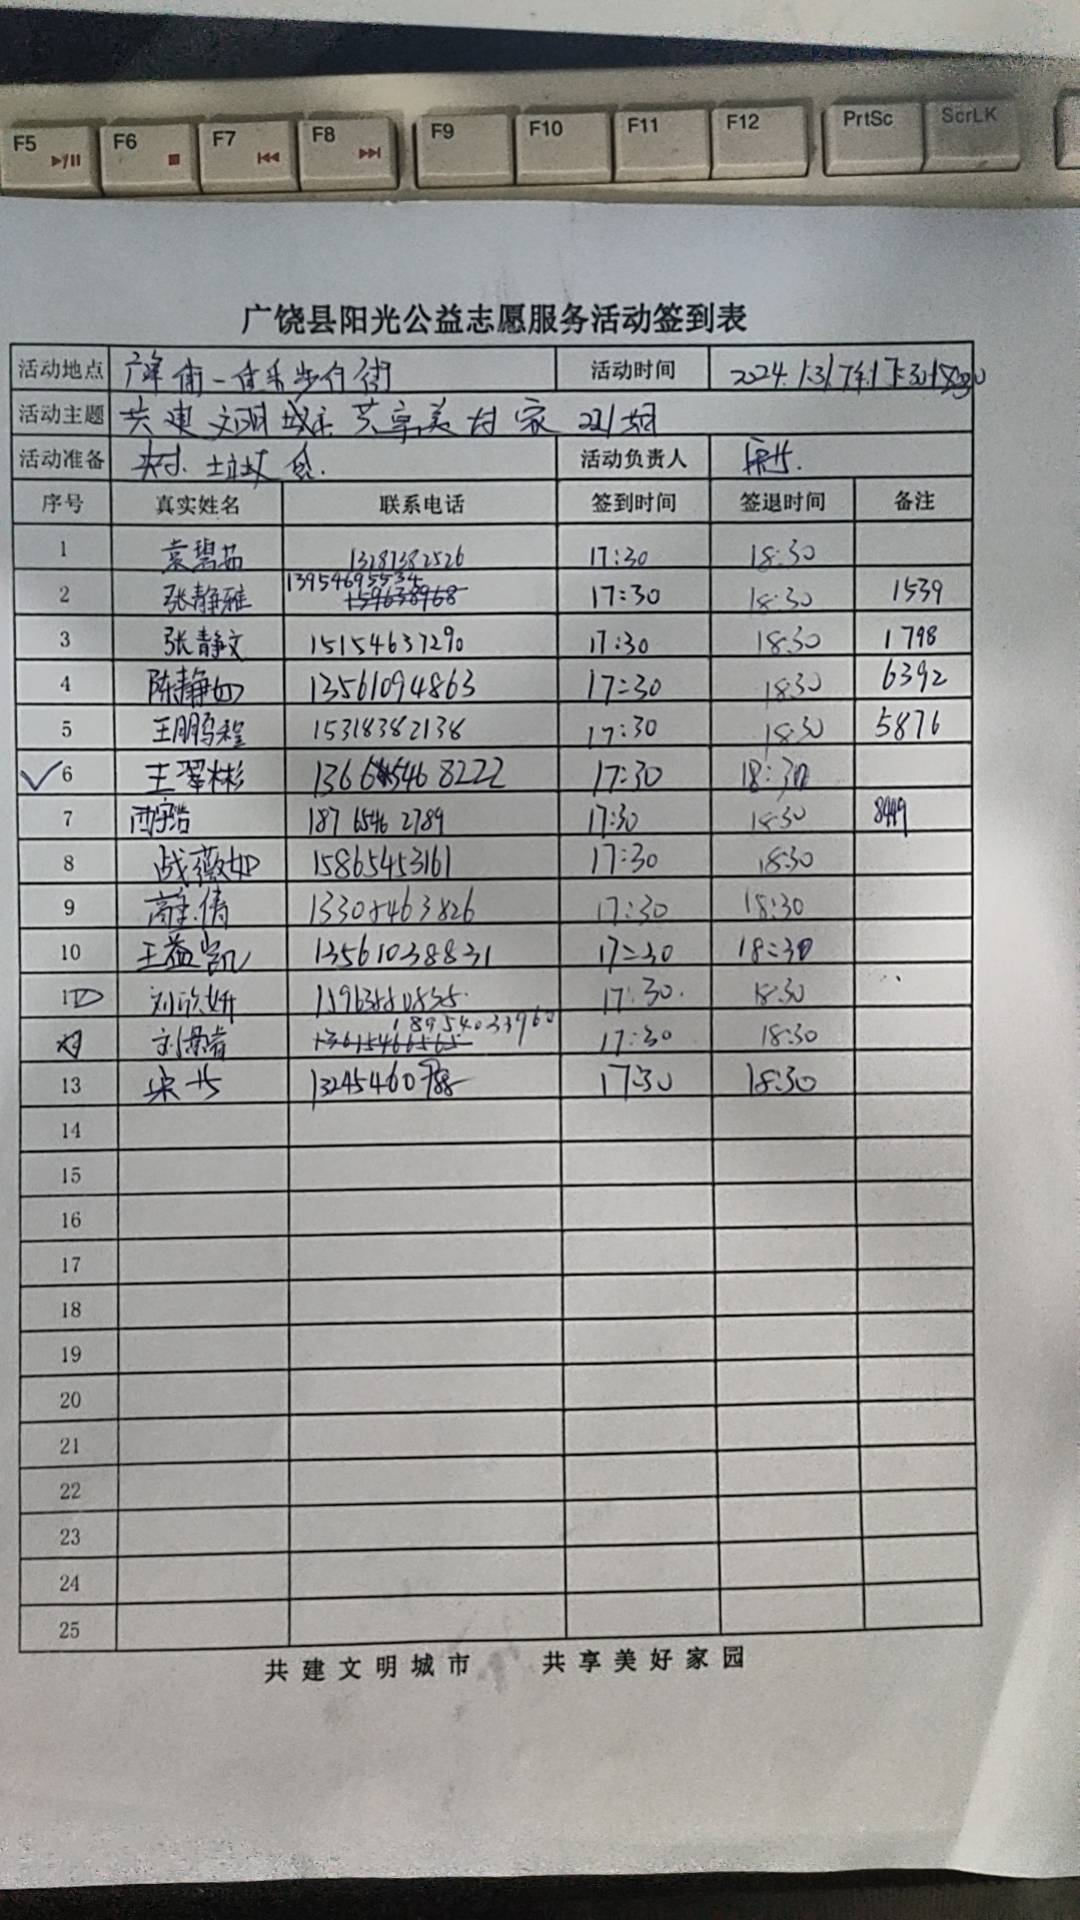 F5 F6 F7 F8 F9 F10 F11 F12 PrtSc ScrLK
广饶县阳光公益志愿服务活动签到表
活动地点 街 步行街 活动时间 2024.1.31下午17:30-18:30
活动主题 共建文明城市 共享美好家 221期
活动准备 活动负责人
序号 真实姓名 联系电话 签到时间 签退时间 备注
1 袁碧茹 13287382526 17:30 18:30
2 张静雅 13954695534 17:30 18:30 1539
3 张静文 15154637290 17:30 18:30 1798
4 陈静如 13561094863 17:30 18:30 6392
5 王鹏程 15318382138 17:30 18:30 5876
6 王翠彬 13665468222 17:30 18:30
7 187 6546 2789 17:30 18:30 8449
8 战薇如 15865453161 17:30 18:30
9 13305463826 17:30 18:30
10 王益凯 13561038831 17:30 18:30
11 刘欣妍 17:30 18:30
刘 18954033960 17:30 18:30
13 13245460788 17:30 18:30
14
15
16
17
18
19
20
21
22
23
24
25
共建文明城市 共享美好家园